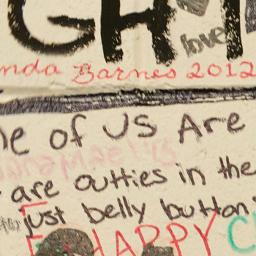 GHT
love
nda Barnes 2012
e of US Are
are outties in the
just belly button
HAPPY C